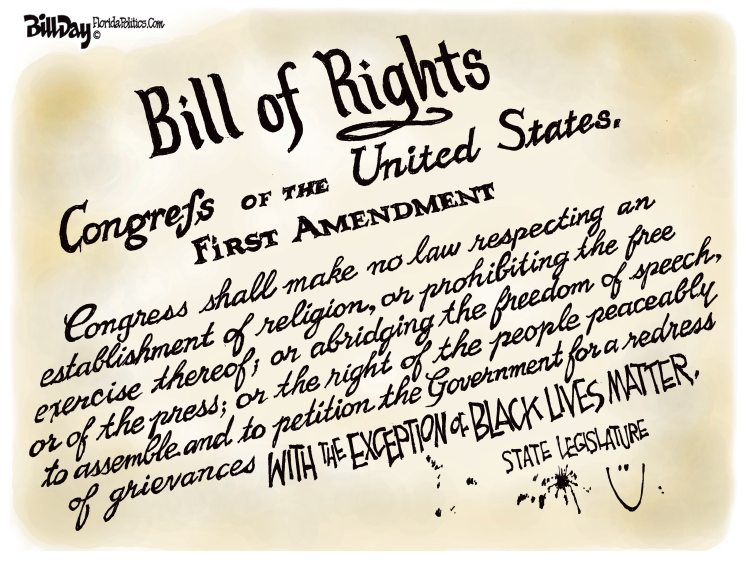 Bill Day FloridaPolitics.Com
©
Bill of Rights
Congreſs OF THE United States.
FIRST AMENDMENT
Congress shall make no law respecting an
establishment of religion, or prohibiting the free
exercise thereof; or abridging the freedom of speech,
or of the press; or the right of the people peaceably
to assemble and to petition the Government for a redress
of grievances WITH THE EXCEPTION OF BLACK LIVES MATTER.
STATE LEGISLATURE